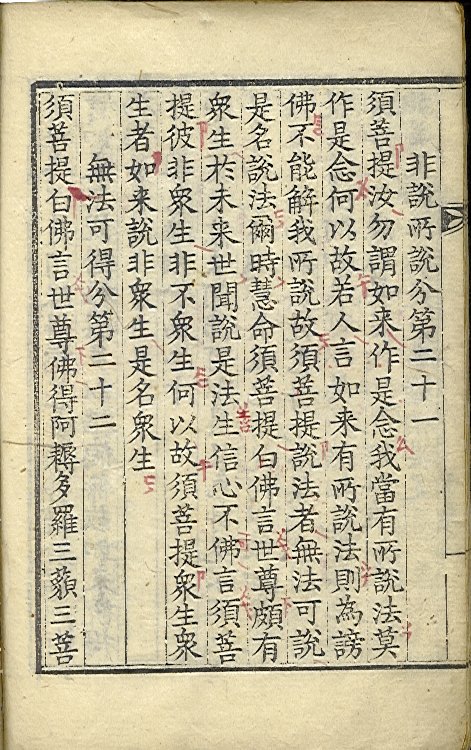 非說所說分第二十一
須菩提汝勿謂如来作是念我當有所說法莫
作是念何以故若人言如来有所說法則為謗
佛不能解我所說故須菩提說法者無法可說
是名說法爾時慧命須菩提白佛言世尊頗有
衆生於未来世聞說是法生信心不佛言須菩
提彼非衆生非不衆生何以故須菩提衆生衆
生者如来說非衆生是名衆生
無法可得分第二十二
須菩提白佛言世尊佛得阿耨多羅三藐三菩